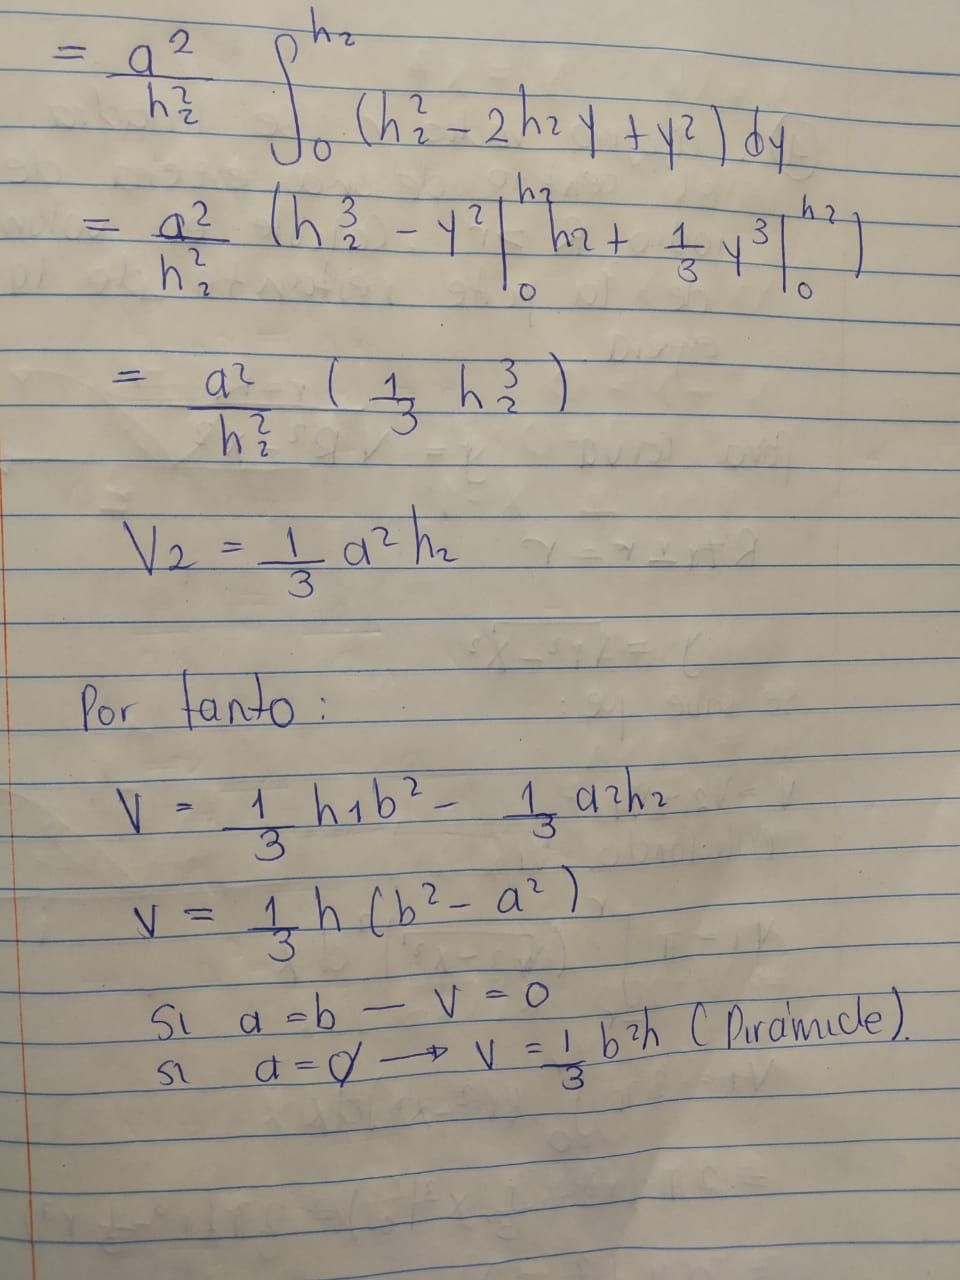 = a²/h₂² ∫₀^h₂ (h₂² - 2h₂y + y²) dy
= a²/h₂² (h₂³ - y²|₀^h₂ h₂ + 1/3 y³|₀^h₂)
= a²/h₂² (1/3 h₂³)
V₂ = 1/3 a² h₂
Por tanto:
V = 1/3 h₁b² - 1/3 a²h₂
V = 1/3 h (b² - a²)
Si a = b — V = 0
si a = 0 → V = 1/3 b²h (Pirámide).